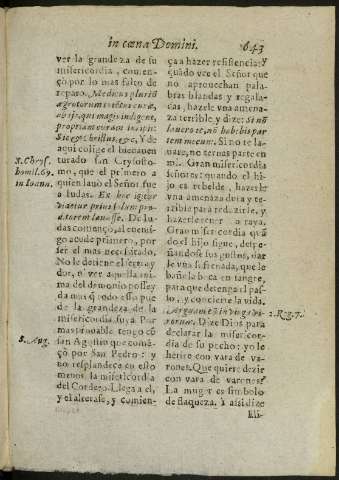 in cœna Domini. 643
ver la grandeza de su
misericordia, comen-
çò por lo mas falto de
reparo. Medicus pluris
ægrotorum
ab ijs, qui magis indigent,
propriam curam
Sic & Christus, &c, Y de
aqui colige el bienauen
turado san Crysosto-
mo, que el primero a
quien lauò el Señor fue
a Iudas. Ex hoc igitur
prius solum pro-
ditorem lauasse. De Iu-
das començò, al enemi-
go acude primero, por
ser el mas necessitado.
No le detiene el ser tray
dor, ni ver aquella ani-
ma del demonio possey
da mas q̃ todo esso pue
de la grandeza de la
misericordia suya. Por
mas prouable tengo cõ
san Agustin que come-
çò por San Pedro: y
no resplandece en esto
menos la misericordia
del Cordero. Llega a el,
y el alterase, y comien-
S. Chrys.
homil. 69.
in Ioann.
S. Aug.
ça a hazer resistencia: Y
quãdo vee el Señor que
no aprouechan pala-
bras blandas y regala-
das, hazele vna amena-
za terrible, y dize: Si nõ
lauero te, nõ habebis par
tem mecum. Si no te la-
uare, no ternas parte en
mi. Gran misericordia
señores: quando el hi-
jo es rebelde, hazerle
vna amenaza dura y te-
rrible para reduzirle, y
hazerle estar a raya.
Gran misericordia quã
do el hijo sigue, despe-
ñandose sus gustos, dar
le vna sofrenada, que le
bañe la boca en sangre,
para que detenga el pas-
so, y conuierte la vida.
Arguam eũ in virga vi-
rorum. Dize Dios para
declarar la misericor-
dia de su pecho: yo le
herire con vara de va-
rones. Que quiere dezir
con vara de varones?
La muger es simbolo
de flaqueza. Y assi dize
2. Reg. 7.
Eli-